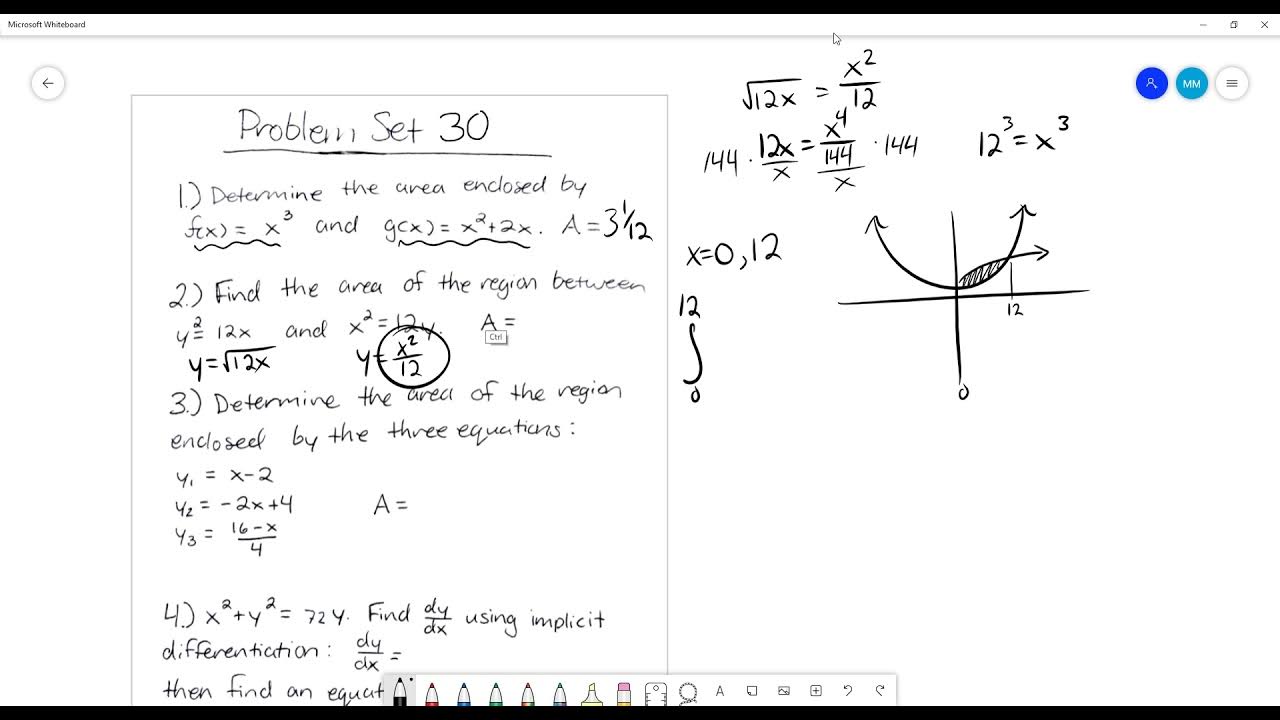 Microsoft Whiteboard
MM
Problem Set 30
1.) Determine the area enclosed by
f(x) = x³ and g(x) = x²+2x. A = 3 1/12
2.) Find the area of the region between
y² = 12x and x² = 12y. A =
Ctrl
y = √12x y = x²/12
3.) Determine the area of the region
enclosed by the three equations:
y₁ = x-2
y₂ = -2x+4 A =
y₃ = 16-x/4
4.) x²+y² = 72y. Find dy/dx using implicit
differentiation: dy/dx =
then find an equat
√12x = x²/12
144 · 12x/x = x⁴/144/x · 144 12³ = x³
x=0,12
12
∫
0
12
0
A